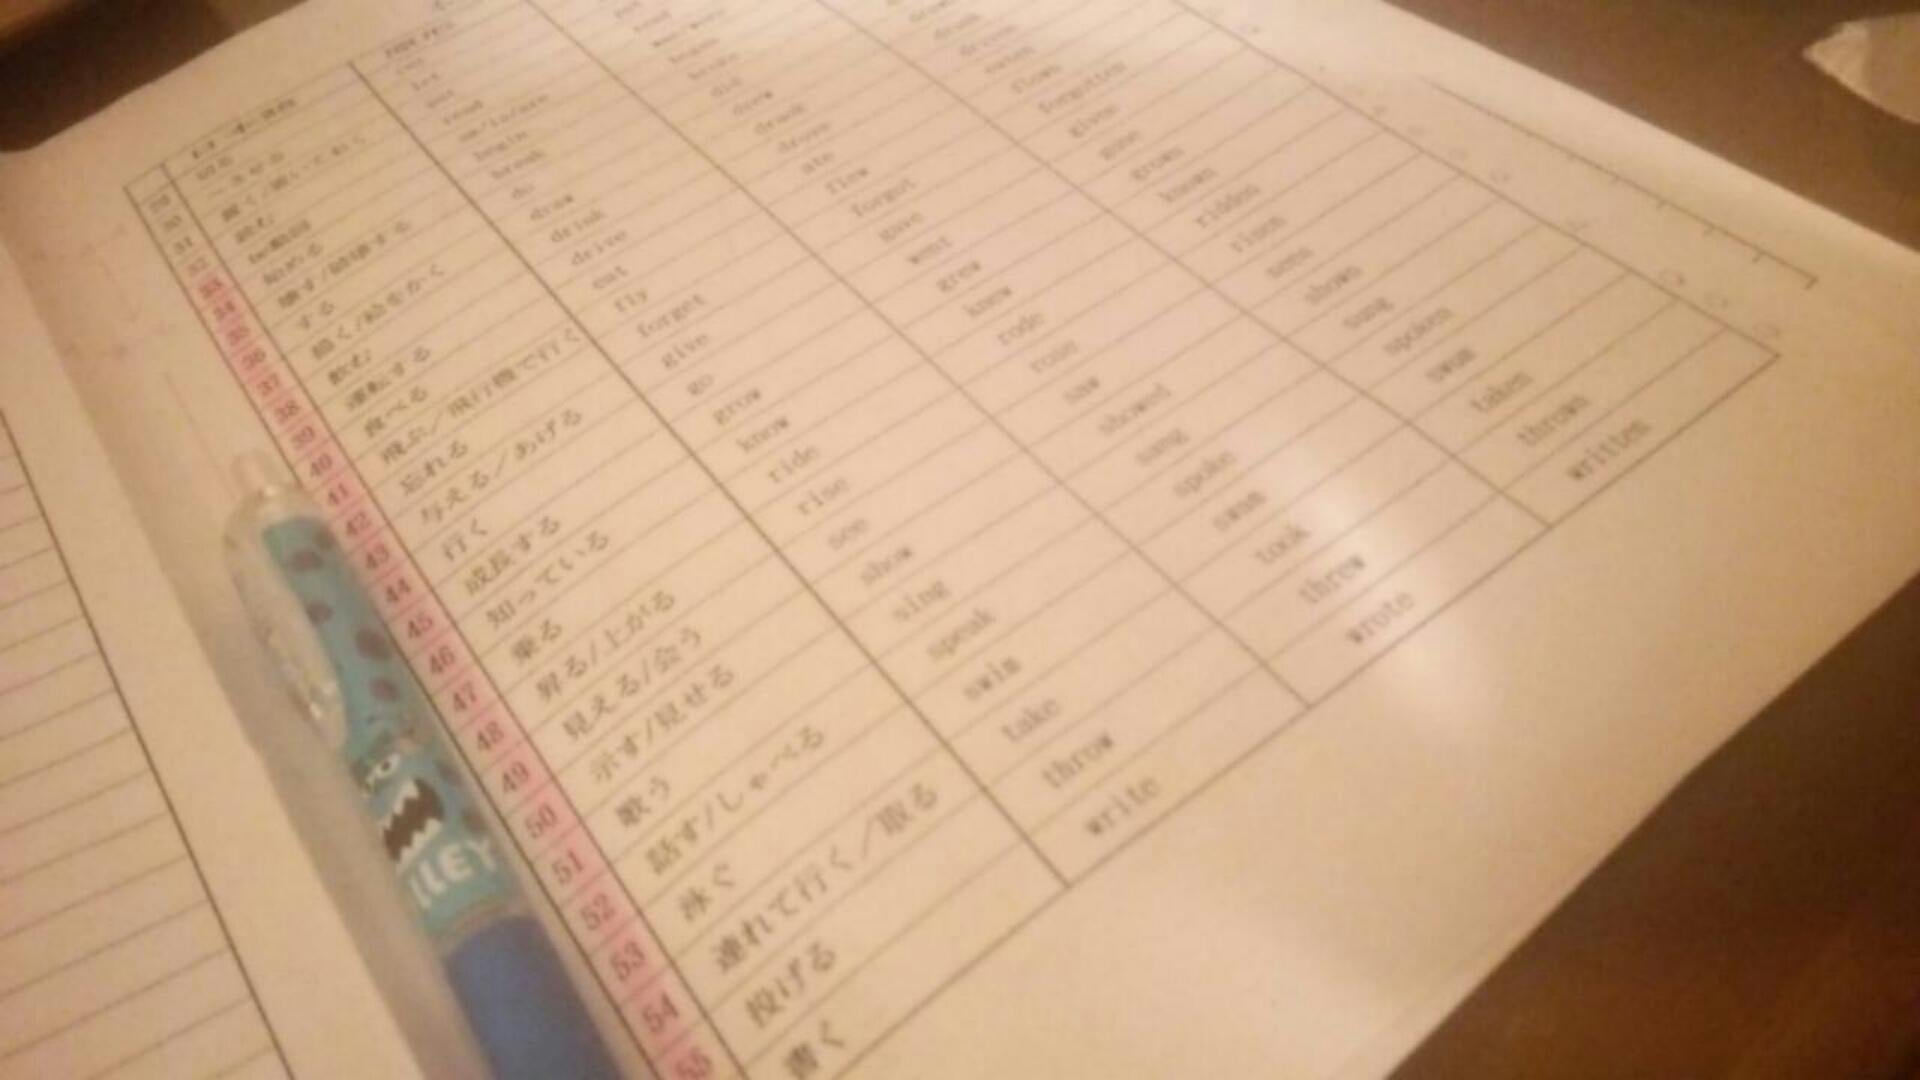 29 ～させる let
30 put
31 読む read read
32 be動詞 am/is/are
33 始める begin began
34 break broke
35 する do did
36 描く/絵をかく draw drew drawn
37 飲む drink drank drunk
38 運転する drive drove driven
39 食べる eat ate eaten
40 飛ぶ／飛行機で行く fly flew flown
41 忘れる forget forgot forgotten
42 与える／あげる give gave given
43 行く go went gone
44 成長する grow grew grown
45 知っている know knew known
46 乗る ride rode ridden
47 昇る/上がる rise rose risen
48 見える/会う see saw seen
49 示す/見せる show showed shown
50 歌う sing sang sung
51 話す/しゃべる speak spoke spoken
52 泳ぐ swim swam swum
53 連れて行く／取る take took taken
54 投げる throw threw thrown
55 書く write wrote written
LLEY